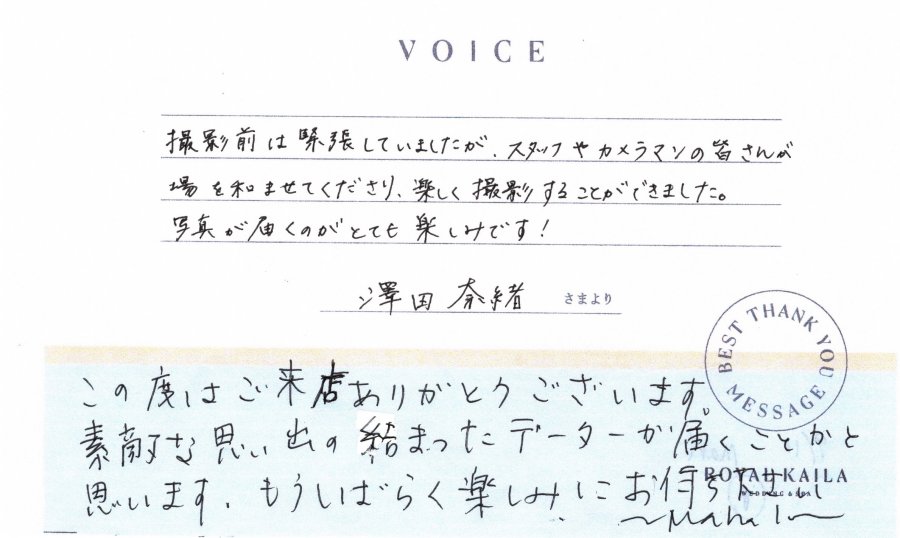 VOICE
撮影前は緊張していましたが、スタッフやカメラマンの皆さんが
場を和ませてくださり、楽しく撮影することができました。
写真が届くのがとても楽しみです!
澤田 奈緒 さまより
BEST THANK YOU MESSAGE
この度はご来店ありがとうございます。
素敵な思い出の詰まったデーターが届くことかと
思います。もういばらく楽しみにお待ち下さい
ROYAL KAILA
WEDDING & SPA
〜Mahalo〜